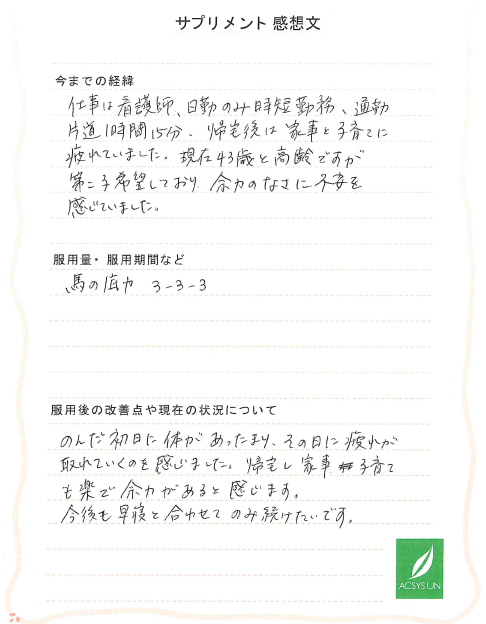 サプリメント 感想文
今までの経緯
仕事は看護師、日勤のみ時短勤務、通勤
片道1時間15分、帰宅後は家事と子育てに
疲れていました。現在43歳と高齢ですが
第二子希望しており、余力のなさに不安を
感じていました。
服用量・服用期間など
馬の底力 3-3-3
服用後の改善点や現在の状況について
のんだ初日に体があったまり、その日に疲れが
取れていくのを感じました。帰宅し家事 子育て
も楽で余力があると感じます。
今後も早寝と合わせてのみ続けたいです。
ACSYSUN